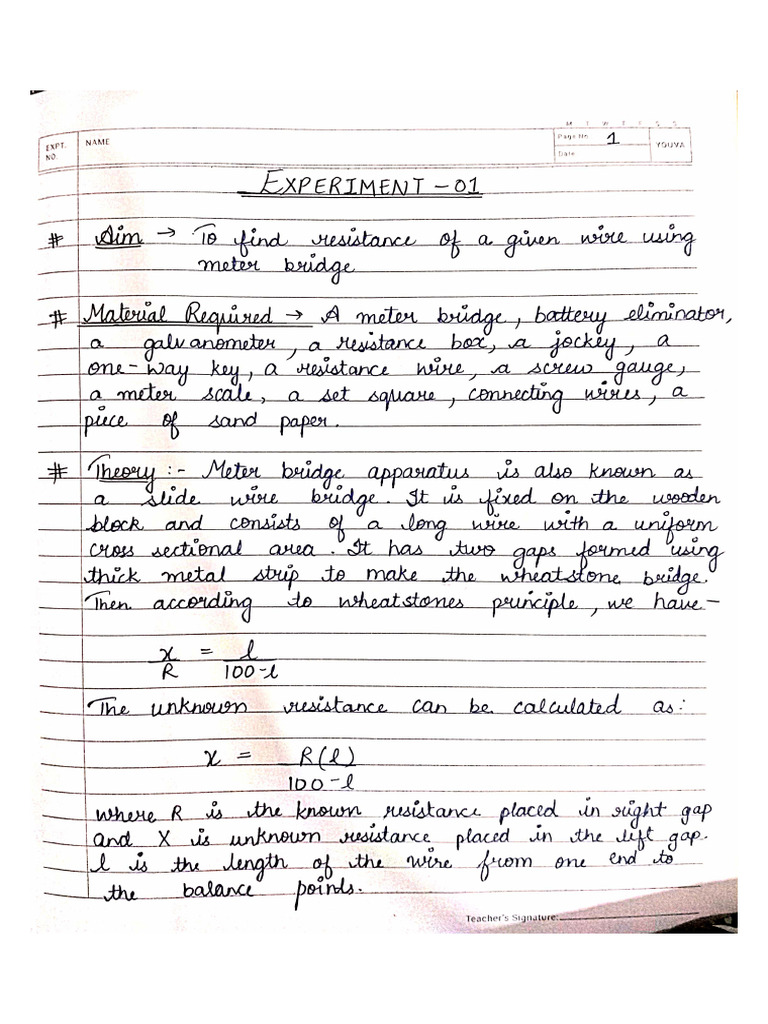 M T W T F S S
EXPT. NO. NAME Page No. 1 YOUVA
Date
EXPERIMENT - 01
# Aim → To find resistance of a given wire using
meter bridge
# Material Required → A meter bridge, battery eliminator,
a galvanometer, a resistance box, a jockey, a
one-way key, a resistance wire, a screw gauge,
a meter scale, a set square, connecting wires, a
piece of sand paper.
# Theory :- Meter bridge apparatus is also known as
a slide wire bridge. It is fixed on the wooden
block and consists of a long wire with a uniform
cross sectional area. It has two gaps formed using
thick metal strip to make the wheatstone bridge.
Then according to wheatstones principle, we have-
x/R = l/100-l
The unknown resistance can be calculated as:
x = R(l)/100-l
where R is the known resistance placed in right gap
and X is unknown resistance placed in the left gap.
l is the length of the wire from one end to
the balance points.
Teacher's Signature: